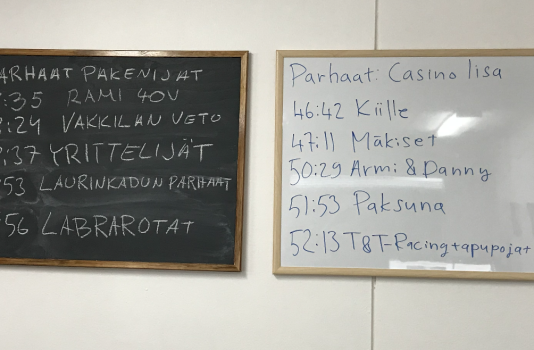 ARHAAT PAKENIJAT
:35 RAMI 40V
:24 VAKKILAN VETO
:37 YRITTELIJÄT
:53 LAURINKADUN PARHAAT
:56 LABRAROTAT
Parhaat: Casino lisa
46:42 Kiille
47:11 Mäkiset
50:29 Armi & Danny
51:53 Paksuna
52:13 T&T-Racing+apupojat